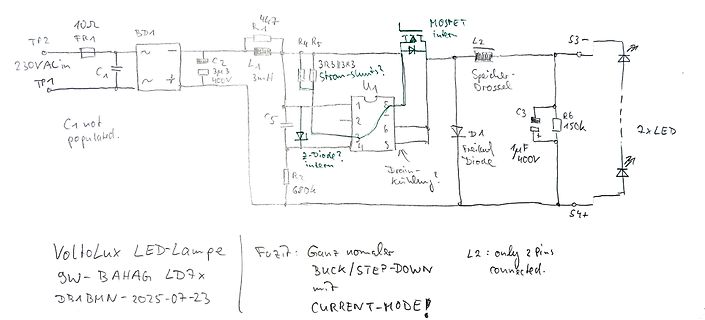 10Ω
FR1
TP2
230VAC in
TP1
C1
C1 not
populated.
BD1
~
~
C2
3µ3
400V
4k7
R1
L1
3mH
R4 R5
3R3 & 3x3
Strom-shunts?
U1
1
2
3
4
8
6
5
C5
Z-Diode?
intern
R2
680k
Drain-
kühlung?
MOSFET
intern
L2
Speicher-
Drossel
D1
Freilauf
Diode
C3
1µF
400V
R6
150k
S3-
S4+
2xLED
VoltoLux LED-Lampe
9W- BAHAG LD7x
DB1BMN-2025-07-23
Fazit: Ganz normaler
BUCK/STEP-DOWN
mit
CURRENT-MODE!
L2: only 2 Pins
connected.